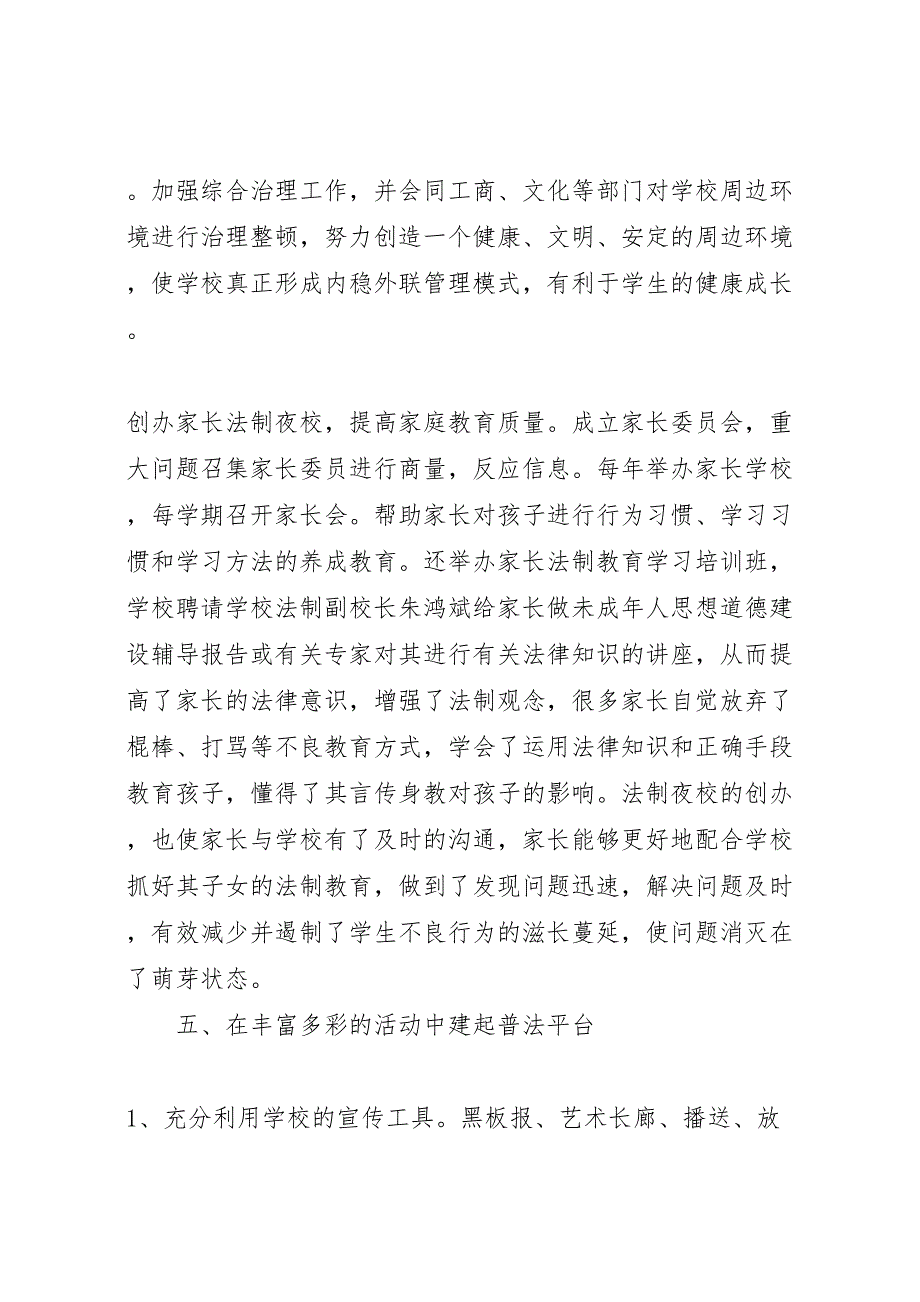 。加强综合治理工作，并会同工商、文化等部门对学校周边环
境进行治理整顿，努力创造一个健康、文明、安定的周边环境
，使学校真正形成内稳外联管理模式，有利于学生的健康成长
。
创办家长法制夜校，提高家庭教育质量。成立家长委员会，重
大问题召集家长委员进行商量，反应信息。每年举办家长学校
，每学期召开家长会。帮助家长对孩子进行行为习惯、学习习
惯和学习方法的养成教育。还举办家长法制教育学习培训班，
学校聘请学校法制副校长朱鸿斌给家长做未成年人思想道德建
设辅导报告或有关专家对其进行有关法律知识的讲座，从而提
高了家长的法律意识，增强了法制观念，很多家长自觉放弃了
棍棒、打骂等不良教育方式，学会了运用法律知识和正确手段
教育孩子，懂得了其言传身教对孩子的影响。法制夜校的创办
，也使家长与学校有了及时的沟通，家长能够更好地配合学校
抓好其子女的法制教育，做到了发现问题迅速，解决问题及时
，有效减少并遏制了学生不良行为的滋长蔓延，使问题消灭在
了萌芽状态。
五、在丰富多彩的活动中建起普法平台
1、充分利用学校的宣传工具。黑板报、艺术长廊、播送、放